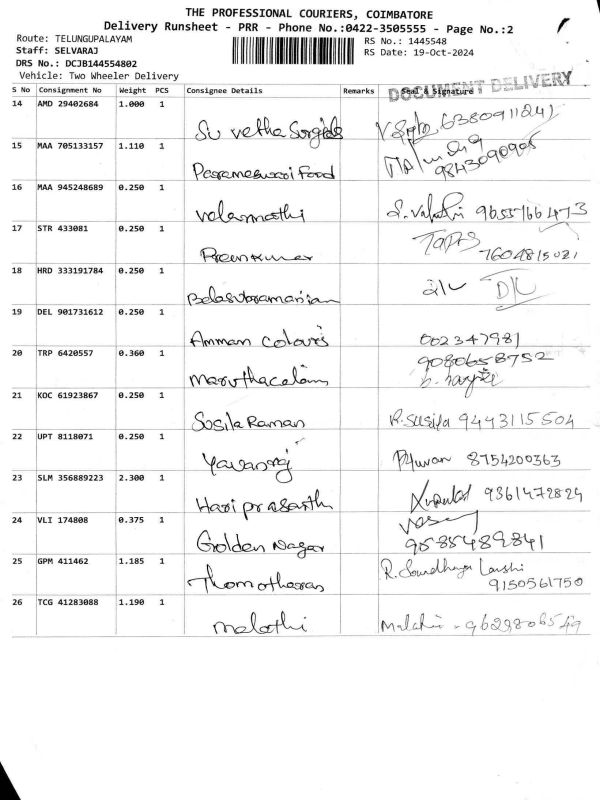 THE PROFESSIONAL COURIERS, COIMBATORE
Delivery Runsheet - PRR - Phone No.:0422-3505555 - Page No.:2
Route: TELUNGUPALAYAM
Staff: SELVARAJ
DRS No.: DCJB144554802
Vehicle: Two Wheeler Delivery
RS No.: 1445548
RS Date: 19-Oct-2024
DOCUMENT DELIVERY
S No Consignment No Weight PCS Consignee Details Remarks Seal & Signature
14 AMD 29402684 1.000 1 6380911241
15 MAA 705133157 1.110 1 Parameswari Food 9843090905
16 MAA 945248689 0.250 1 Valarmathi 9655766473
17 STR 433081 0.250 1 Premkumar 7604815021
18 HRD 333191784 0.250 1 Balasubramanian
19 DEL 901731612 0.250 1 Amman Colours 002347981
20 TRP 6420557 0.360 1 9080658752
21 KOC 61923867 0.250 1 Susila Raman R.Susila 9443115504
22 UPT 8118071 0.250 1 Yavanraj 8754200363
23 SLM 356889223 2.300 1 Hari prasanth 9361472824
24 VLI 174808 0.375 1 Golden Nagar 9585489841
25 GPM 411462 1.185 1 9150561750
26 TCG 41283088 1.190 1 Malathi Malathi - 9629806549